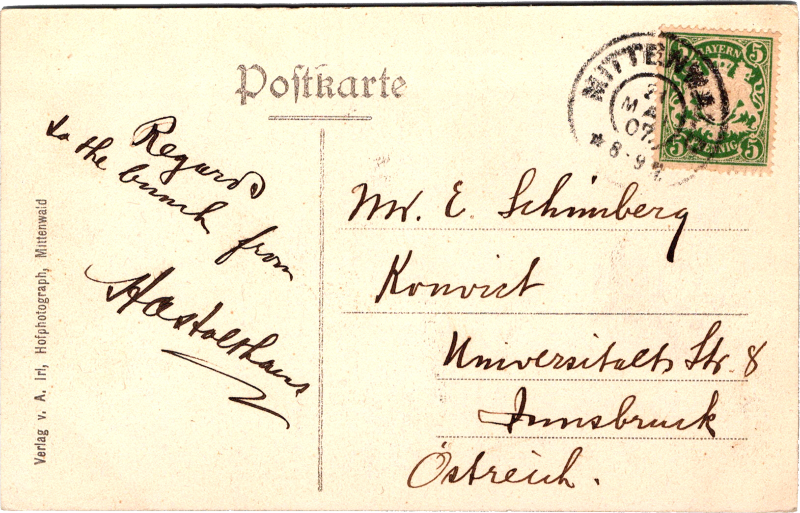 Postkarte
BAYERN
5 5
PFENNIG
5 5
MITTENWA
MA
07
8-9 V.
Regards
to the bunch from
Mr. E. Schimberg
Konvict
Universitalts Str. 8
Innsbruck
Östreich.
Verlag v. A. Irl, Hofphotograph, Mittenwald